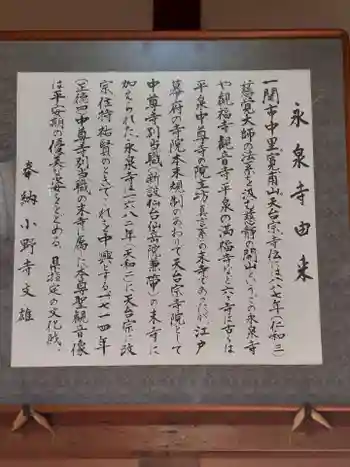 永泉寺由来
一関市中里、寛甫山。天台宗、寺伝には八八七年(仁和三)
慈覚大師の法系を汲む慈静の開山という。この永泉寺
や観福寺、観音寺、平泉の満福寺など六ヶ寺は古くは
平泉中尊寺の院主坊(真言系)の末寺であったが、江戸
幕府の寺院本末規制のあおりで天台宗寺院として
中尊寺別当職(新設仙台仙岳院兼帯)の末寺に
加えられた。永泉寺は一六八二年(天和二)に天台宗に改
宗、住持祐賢のときで、これを中興とする。一七一四年
(正徳四)中尊寺別当職の末寺に属した。本尊聖観音像
は平安期の優美な姿をとどめる。県指定の文化財。
奉納 小野寺文雄